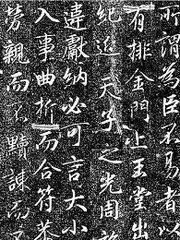 所谓为臣不易者以
有排金門上玉堂出
紀迩天子之光周
違獻納必可言大小
入事曲折而合符采
勞親而不黷諫而